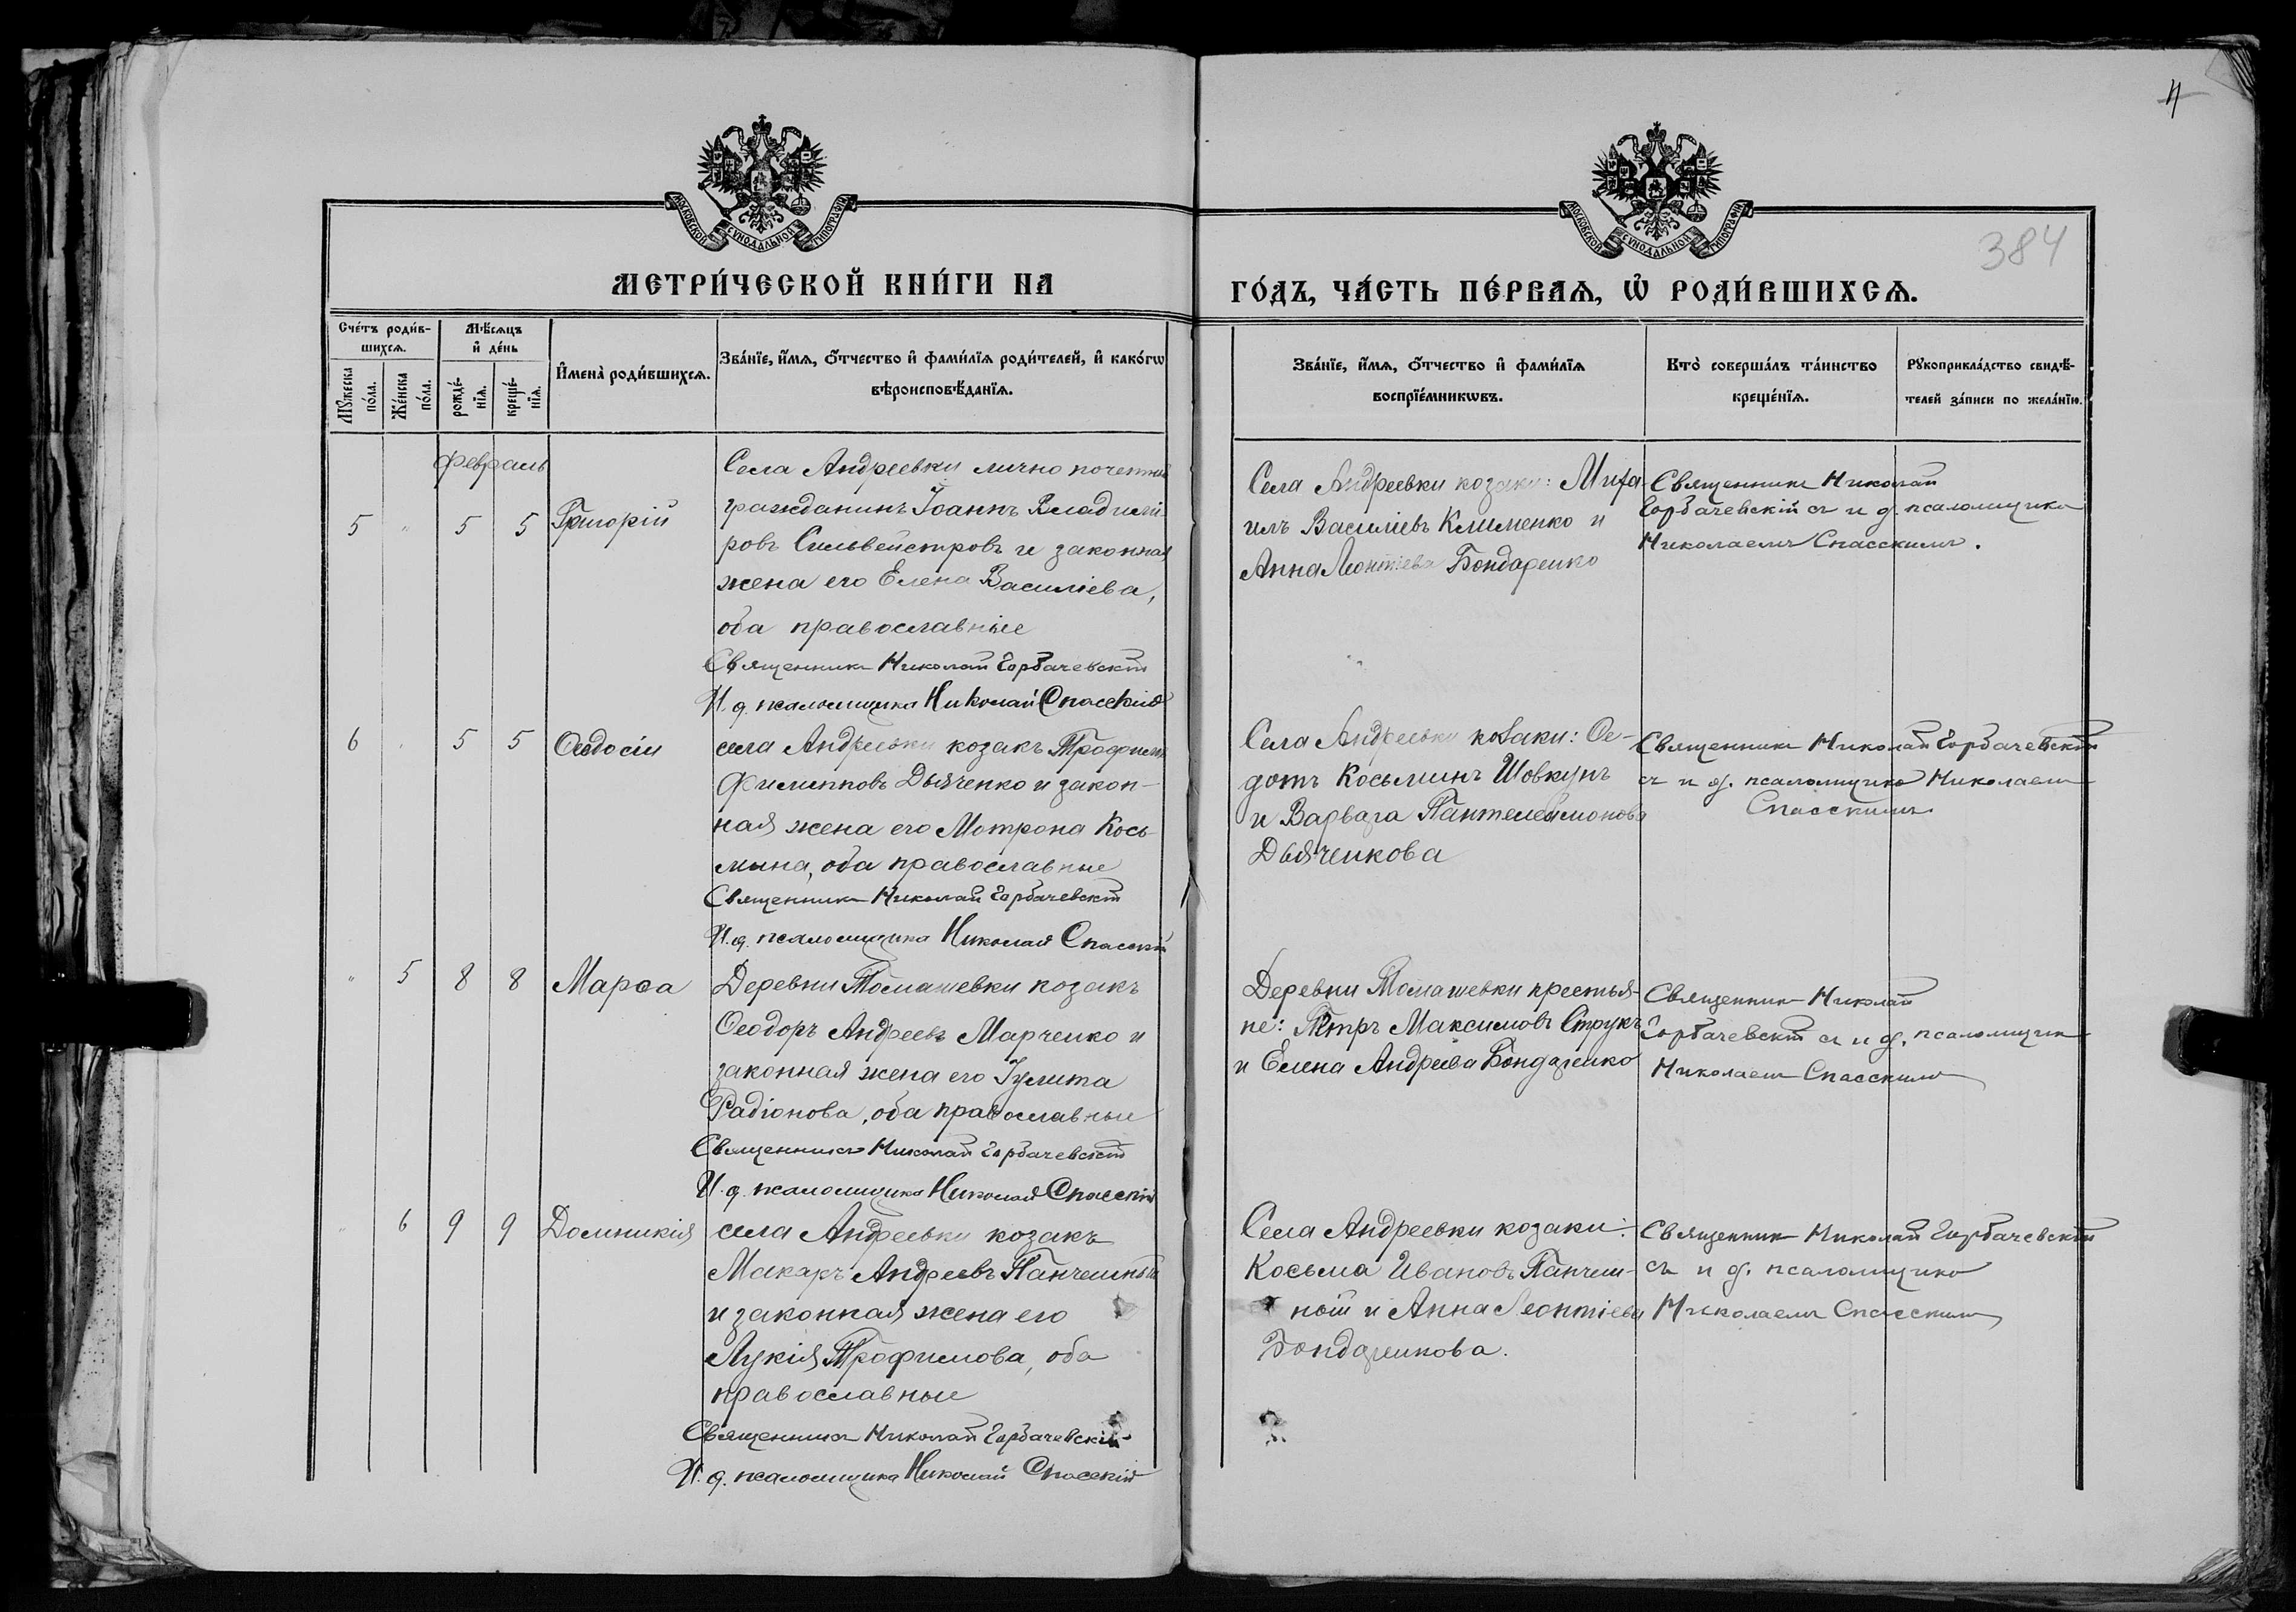 4
384
МОСКОВСКОЙ СѴНОДАЛЬНОЙ ТИПОГРАФІИ
МОСКОВСКОЙ СѴНОДАЛЬНОЙ ТИПОГРАФІИ
МЕТРИ́ЧЕСКОЙ КНИ́ГИ НА
ГО́ДЪ, ЧА́СТЬ ПЕ́РВАѦ, Ѡ҆ РОДИ́ВШИХСѦ.
Сче́тъ роди́в-
шихсѧ.
Мꙋ́жеска по́ла.
Же́нска по́ла.
Мѣ́сѧцъ
и҆ де́нь
рожде́-
нїѧ.
креще́-
нїѧ.
И҆мена̀ роди́вшихсѧ.
Зва́нїе, и҆́мѧ, ѻ҆́тчество и҆ фами́лїѧ роди́телей, и҆ како́гѡ
вѣроисповѣ́данїѧ.
Зва́нїе, и҆́мѧ, ѻ҆́тчество и҆ фами́лїѧ
воспрїе́мникѡвъ.
Кто̀ соверша́лъ та́инство
креще́нїѧ.
Рꙋкоприкла́дство свидѣ́-
телей за́писи по жела́нїю.
Февраль
5 " 5 5 Григорій
Села Андреевки лично почетный
гражданинъ Іоаннъ Владимі
ровъ Сильвейстровъ и законная
жена его Елена Василіева,
оба православніе
Священникъ Николай Горбачевскій
И. д. псаломщика Николай Спасскій
Села Андреевки козаки: Миха
илъ Василіевъ Клименко и
Анна Леонтіева Бондаренко
Священникъ Николай
Горбачевскій съ и д. псаломщика
Николаемъ Спасскимъ.
6 " 5 5 Ѳеодосій
села Андреевки козакъ Трофимъ
Филипповъ Дьяченко и закон-
ная жена его Мотрона Кось
мина, оба православные
Священникъ Николай Горбачевскій
И. д. псаломщика Николай Спасскій
Села Андреевки козаки: Ѳе-
дотъ Косьминъ Шовкунъ
и Варвара Пантелеимонова
Дьяченкова
Священникъ Николай Горбачевскій
съ и д. псаломщика Николаемъ
Спасскимъ
" 5 8 8 Марѳа
Деревни Томашевки козакъ
Ѳеодоръ Андреевъ Марченко и
законная жена его Іулита
Радіонова, оба православные
Священникъ Николай Горбачевскій
И. д. псаломщика Николай Спасскій
Деревни Томашевки крестья-
не: Петръ Максимовъ Струкъ
и Елена Андреева Бондаренко
Священникъ Николай
Горбачевскій съ и д. псаломщика
Николаемъ Спасскимъ
" 6 9 9 Домникія
села Андреевки козакъ
Макаръ Андреевъ Панчешный
и законная жена его
Лукія Трофимова, оба
православные
Священникъ Николай Горбачевскій
И. д. псаломщика Николай Спасскій
Села Андреевки козаки:
Косьма Ивановъ Панчеш-
ный и Анна Леонтіева
Бондаренкова.
Священникъ Николай Горбачевскій
съ и д. псаломщика
Николаемъ Спасскимъ